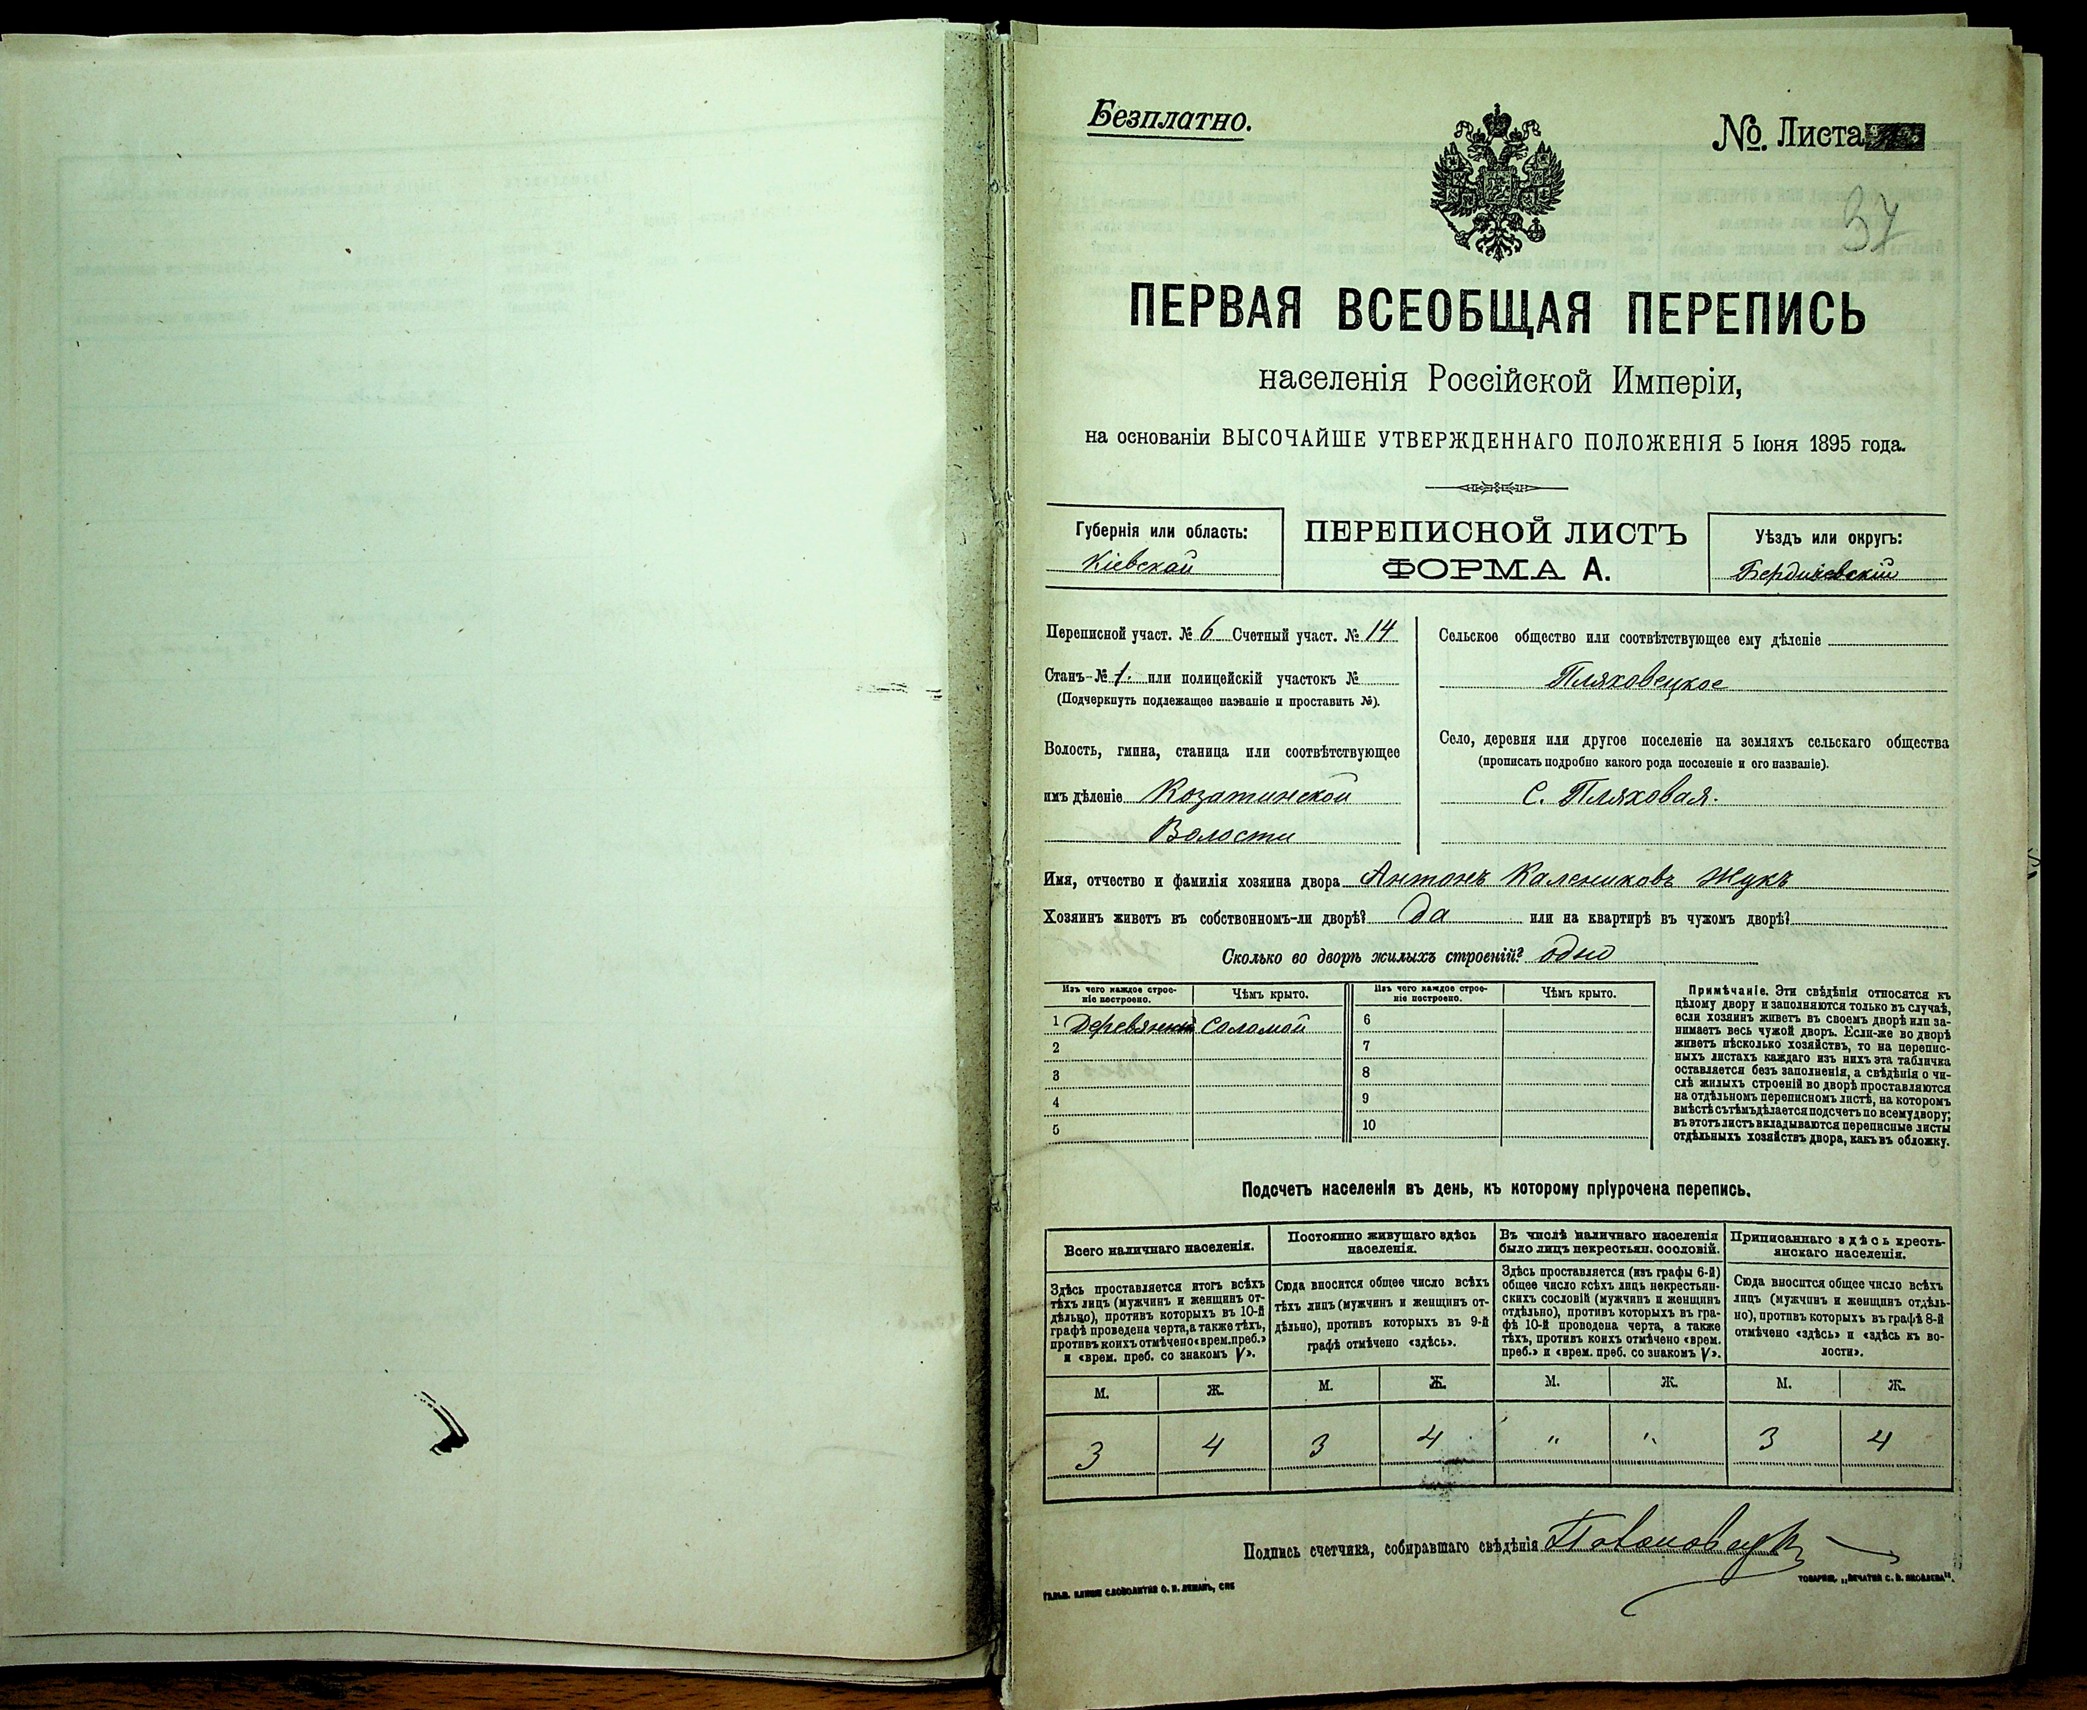 Безплатно.
№. Листа
37
ПЕРВАЯ ВСЕОБЩАЯ ПЕРЕПИСЬ
населенія Россійской Имперіи,
на основаніи ВЫСОЧАЙШЕ УТВЕРЖДЕННАГО ПОЛОЖЕНІЯ 5 Іюня 1895 года.
Губернія или область:
Кіевская
ПЕРЕПИСНОЙ ЛИСТЪ
ФОРМА А.
Уѣздъ или округъ:
Бердичевскій
Переписной участ. № 6 Счетный участ. № 14
Станъ-№ 1. или полицейскій участокъ №
(Подчеркнуть подлежащее названіе и проставить №).
Волость, гмина, станица или соотвѣтствующее
имъ дѣленіе Козатинской
Волости
Сельское общество или соотвѣтствующее ему дѣленіе
Пляховецкое
Село, деревня или другое поселеніе на земляхъ сельскаго общества
(прописать подробно какого рода поселеніе и его названіе).
С. Пляховая.
Имя, отчество и фамилія хозяина двора Антонъ Калениковъ Жукъ
Хозяинъ живетъ въ собственномъ-ли дворѣ? да или на квартирѣ въ чужомъ дворѣ?
Сколько во дворѣ жилыхъ строеній? одно
Изъ чего каждое строе-
ніе построено.
Чѣмъ крыто.
Изъ чего каждое строе-
ніе построено.
Чѣмъ крыто.
1 Деревянный Соломой 6
2 7
3 8
4 9
5 10
Примѣчаніе. Эти свѣдѣнія относятся къ
цѣлому двору и заполняются только въ случаѣ,
если хозяинъ живетъ въ своемъ дворѣ или за-
нимаетъ весь чужой дворъ. Если-же во дворѣ
живетъ нѣсколько хозяйствъ, то на перепис-
ныхъ листахъ каждаго изъ нихъ эта табличка
оставляется безъ заполненія, а свѣдѣнія о чи-
слѣ жилыхъ строеній во дворѣ проставляются
на отдѣльномъ переписномъ листѣ, на которомъ
вмѣстѣ съ тѣмъ дѣлается подсчетъ по всему двору;
въ этотъ листъ вкладываются переписные листы
отдѣльныхъ хозяйствъ двора, какъ въ обложку.
Подсчетъ населенія въ день, къ которому пріурочена перепись.
Всего наличнаго населенія.
Здѣсь проставляется итогъ всѣхъ
тѣхъ лицъ (мужчинъ и женщинъ от-
дѣльно), противъ которыхъ въ 10-й
графѣ проведена черта, а также тѣхъ,
противъ коихъ отмѣчено «врем. преб.»
и «врем. преб. со знакомъ V».
Постоянно живущаго здѣсь
населенія.
Сюда вносится общее число всѣхъ
тѣхъ лицъ (мужчинъ и женщинъ от-
дѣльно), противъ которыхъ въ 9-й
графѣ отмѣчено «здѣсь».
Въ числѣ наличнаго населенія
было лицъ некрестьян. сословій.
Здѣсь проставляется (изъ графы 6-й)
общее число всѣхъ лицъ некрестьян-
скихъ сословій (мужчинъ и женщинъ
отдѣльно), противъ которыхъ въ гра-
фѣ 10-й проведена черта, а также
тѣхъ, противъ коихъ отмѣчено «врем.
преб.» и «врем. преб. со знакомъ V».
Приписаннаго здѣсь кресть-
янскаго населенія.
Сюда вносится общее число всѣхъ
лицъ (мужчинъ и женщинъ отдѣль-
но), противъ которыхъ въ графѣ 8-й
отмѣчено «здѣсь» и «здѣсь въ во-
лости».
М. Ж. М. Ж. М. Ж. М. Ж.
3 4 3 4 " " 3 4
Подпись счетчика, собиравшаго свѣдѣнія
ГАЛЬВ. КЛИШЕ СЛОВОЛИТНИ О. И. ЛЕМАНЪ, СПБ
ТОВАРИЩ. „ПЕЧАТНЯ С. П. ЯКОВЛЕВА".